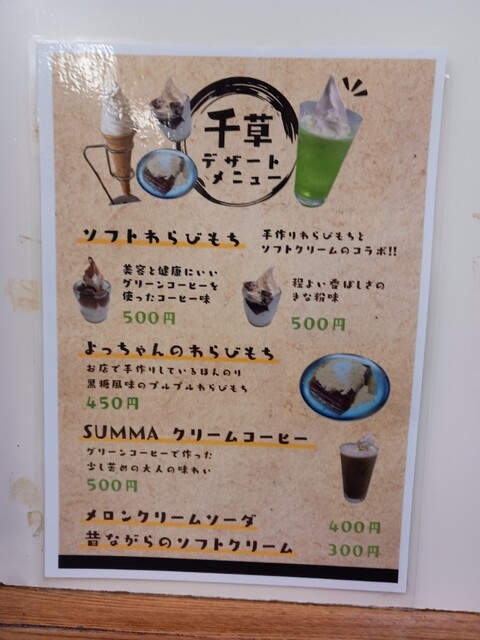 千草
デザート
メニュー
ソフトわらびもち
手作りわらびもちと
ソフトクリームのコラボ!!
美容と健康にいい
グリーンコーヒーを
使ったコーヒー味
500円
程よい香ばしさの
きな粉味
500円
よっちゃんのわらびもち
お店で手作りしているほんのり
黒糖風味のプルプルわらびもち
450円
SUMMA クリームコーヒー
グリーンコーヒーで作った
少し苦めの大人の味わい
500円
メロンクリームソーダ 400円
昔ながらのソフトクリーム 300円